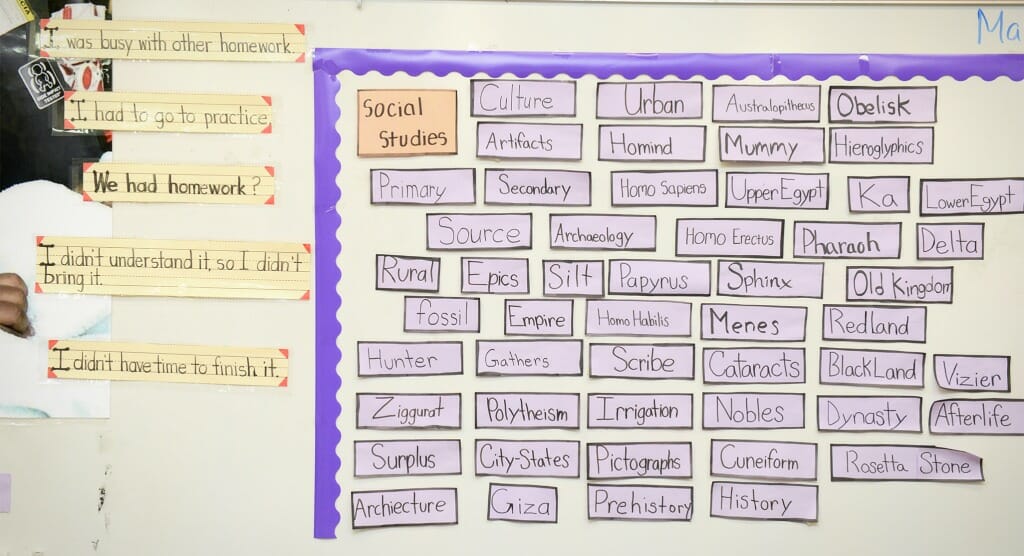 I was busy with other homework.
I had to go to practice.
We had homework?
I didn't understand it, so I didn't
bring it.
I didn't have time to finish it.
Ma
Social
Studies
Culture Urban Australopithecus Obelisk
Artifacts Homind Mummy Hieroglyphics
Primary Secondary Homo Sapiens Upper Egypt Ka Lower Egypt
Source Archaeology Homo Erectus Pharaoh Delta
Rural Epics Silt Papyrus Sphinx Old Kingdom
fossil Empire Homo Habilis Menes Redland
Hunter Gathers Scribe Cataracts Black Land Vizier
Ziggurat Polytheism Irrigation Nobles Dynasty Afterlife
Surplus City-States Pictographs Cuneiform Rosetta Stone
Archiecture Giza Prehistory History